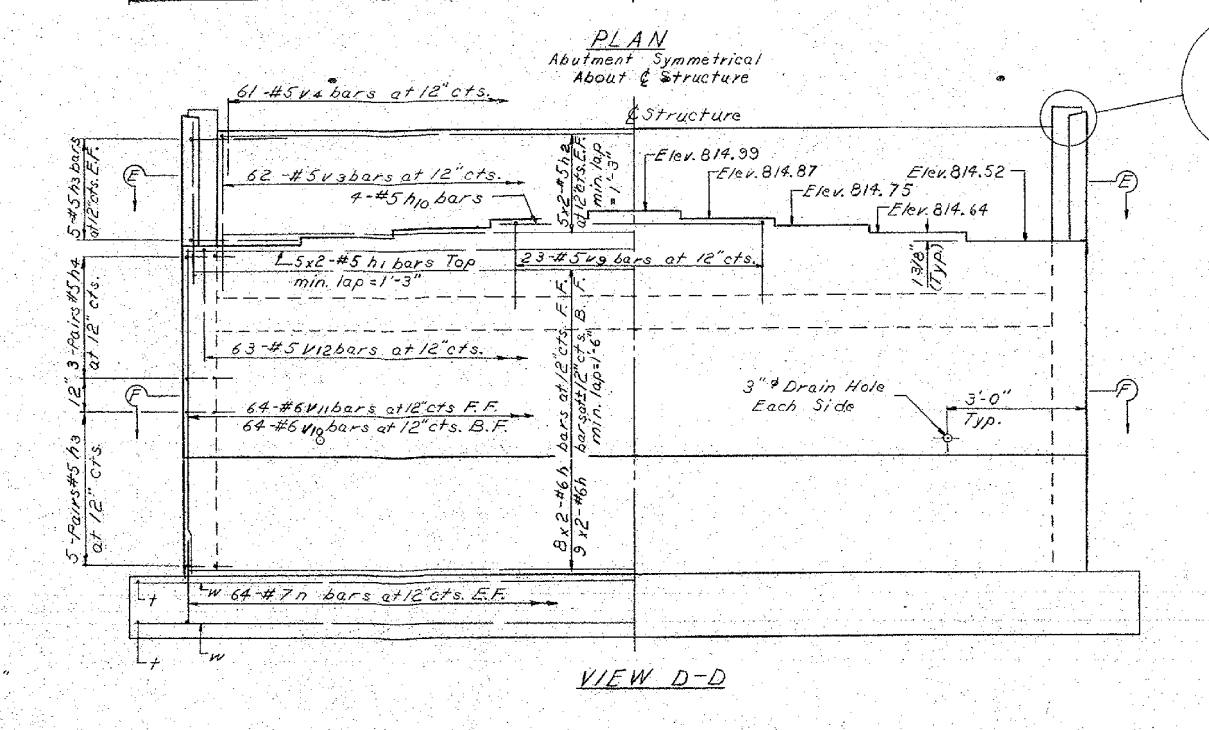 PLAN
Abutment Symmetrical
About ℄ Structure
61-#5 v4 bars at 12" cts.
℄ Structure
5-#5 h3 bars
at 12" cts. E.F.
E
62-#5 v3 bars at 12" cts.
4-#5 h10 bars
5x2-#5 h2
at 12" cts. E.F.
min. lap
= 1'-3"
Elev. 814.99
Elev. 814.87
Elev. 814.75
Elev. 814.64
Elev. 814.52
E
5x2-#5 h1 bars Top
min. lap = 1'-3"
23-#5 v9 bars at 12" cts.
1 3/8"
(Typ.)
3-Pairs #5 h4
at 12" cts.
12"
63-#5 v12 bars at 12" cts.
F
64-#6 v11 bars at 12" cts F.F.
64-#6 v10 bars at 12" cts. B.F.
8x2-#6h bars at 12" cts. F.F.
9x2-#6h bars at 12" cts. B.F.
min. lap = 1'-6"
3" ϕ Drain Hole
Each Side
3'-0"
Typ.
F
5-Pairs #5 h3
at 12" cts.
t
w
64-#7 n bars at 12" cts. E.F.
t
w
VIEW D-D